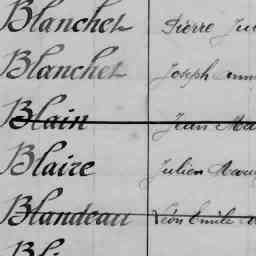 Blanchet Pierre
Blanchet Joseph
Blain Jean Ma
Blaire Julien
Blandeau Léon Emile
Bl